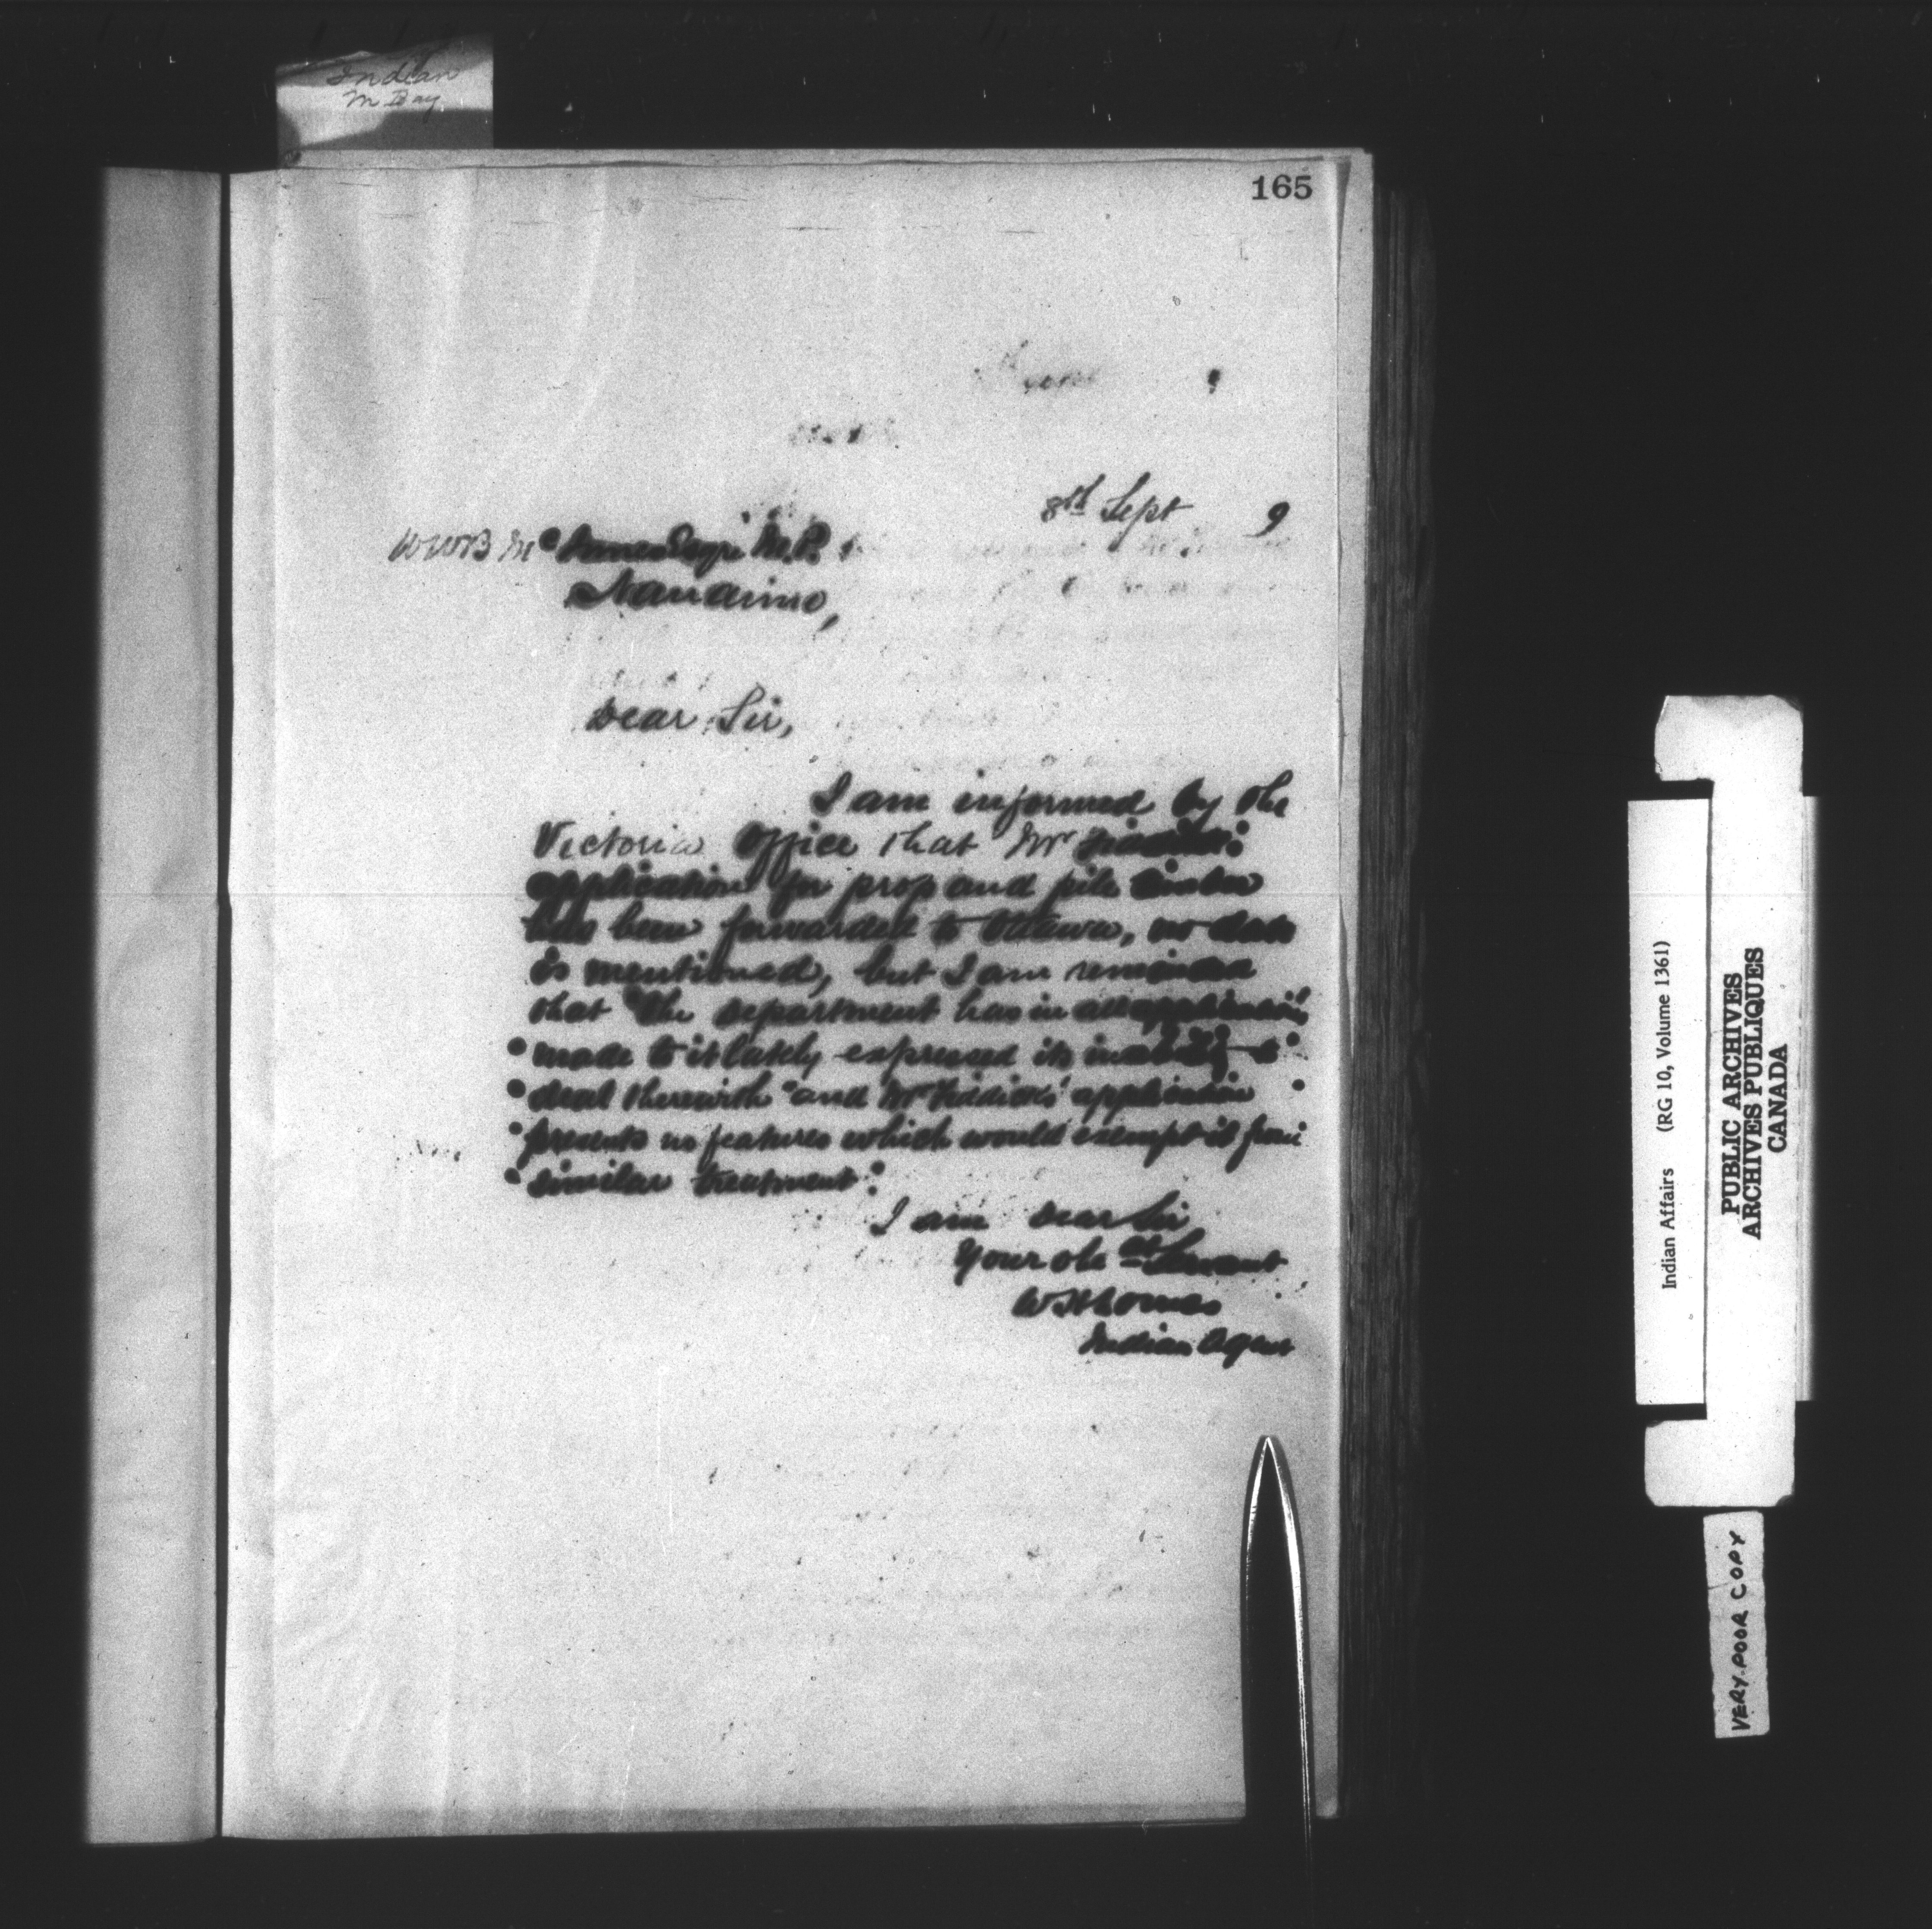 Indian
165
8th Sept 9
WWB McInnes Esqr M.P.
Nanaimo,
Dear Sir,
I am informed by the
Victoria Office that Mr
application for prop and pile timber
has been forwarded to Ottawa, no date
is mentioned, but I am reminded
that "the department has in all applications
"made to it lately expressed its inability to
"deal therewith" and Mr Fiddick's application
"presents no features which would exempt it from
"similar treatment".
I am Dear Sir
Your obt Servant
W H Lomas
Indian Agent
Indian Affairs (RG 10, Volume 1361)
PUBLIC ARCHIVES
ARCHIVES PUBLIQUES
CANADA
VERY POOR COPY